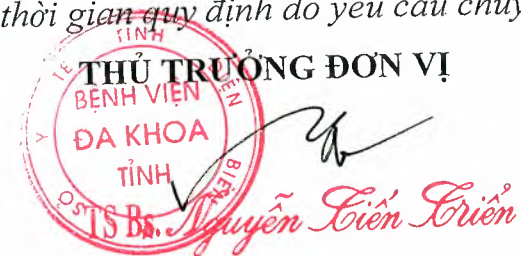 thời gian quy định do yêu cầu chuy
THỦ TRƯỞNG ĐƠN VỊ
SỞ Y TẾ TỈNH ĐIỆN BIÊN
BỆNH VIỆN
ĐA KHOA
TỈNH
TS Bs. Nguyễn Tiến Triển